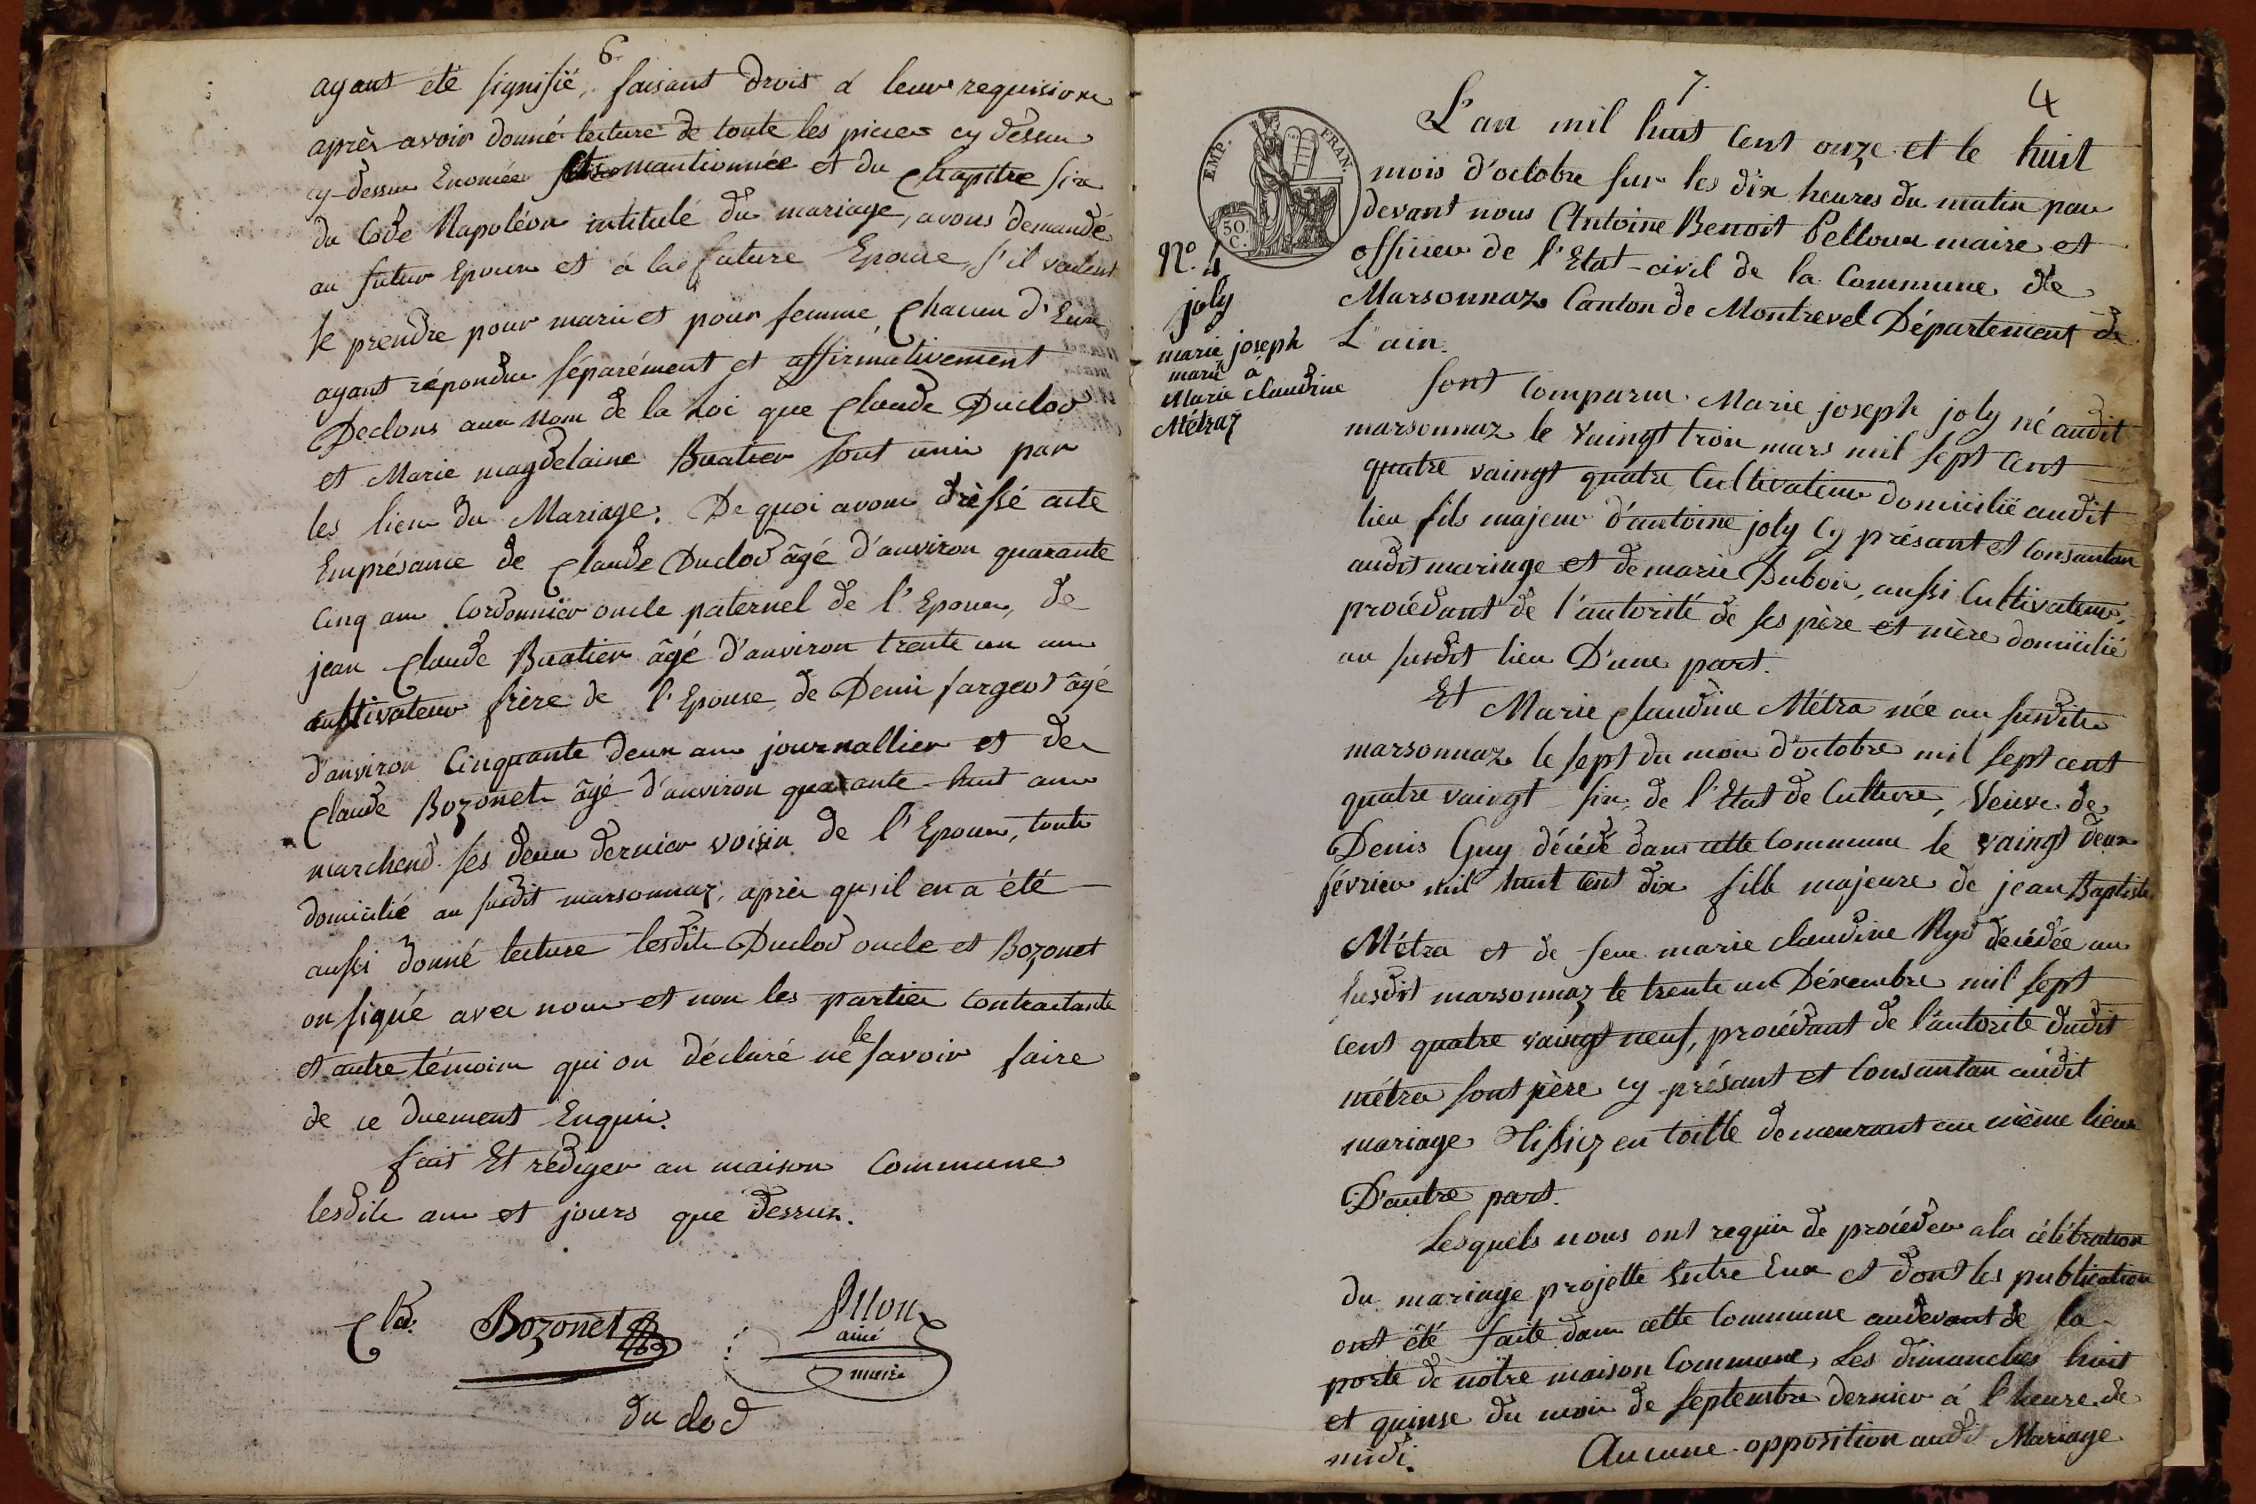 6.
ayant été signifié, faisant droit a leur requisition
après avoir donné lecture de toute les pieces cy dessus
cy-dessus Enomée mantionnée et du chapitre six
du Code Napoléon intitulé du mariage, avons demandé
au futur Epoux et á la future Epouse, s'il veulent
se prendre pour mari et pour femme, chacun d'Eux
ayant répondu séparément et affirmativement
Declons au nom de la Loi que claude Duclod
et Marie magdelaine Buatier sont unis par
les liens du Mariage. De quoi avons drèssé acte
Emprésance de claude Duclod âgé d'anviron quarante
cinq ans Cordonnier oncle paternel de l'Epoux, de
jean claude Buatier âgé d'anviron trente un ans
cultivateur frère de l'Epouse, de Deni fargeot âgé
d'anviron Cinquante deux ans journallier et de
claude Bozonet âgé d'anviron quarante-huit ans
marchend ses deux dernier voisin de l'Epoux, touts
domicilié au susdit marsonnaz, après qu'il en a été
aussi donné lecture lesdits Duclod oncle et Bozonet
on signé avec nous et non les parties Contractante
et autre témoins qui on déclaré ne le savoir faire
de ce duement Enquis.
fait Et rédiger an maison Commune
lesdits ans et jours que dessus.
Cla. Bozonet
ainé
maire
du clod
7.
4
EMP. FRAN.
50.
C.
N.º 4
joly
marie joseph
marié á
Marie claudine
Métraz
L'an mil huit Cent onze et le huit
mois d'octobre sur les dix heures du matin par
devant nous Antoine Benoit Pelloux maire et
officier de l'Etat-civil de la Commune de
Marsonnaz Canton de Montrevel Département de
L'ain.
sont Comparus Marie joseph joly né audit
marsonnaz le vaingt trois mars mil sept Cent
quatre vaingt quatre Cultivateur domicilié audit
lieu fils majeur d'antoine joly Cy présant et Consantan
audit mariage et de marie Dubois, aussi Cultivateur,
procédant de l'autorité de ses père et mère domicilié
au susdit lieu D'une part.
Et Marie claudine Métra née au susdits
marsonnaz le sept du mois d'octobre mil sept cent
quatre vaingt six, de l'Etat de Culture, Veuve de
Denis Guy décédé dans cette Commune le vaingt deux
février mil huit cent dix fille majeure de jean Baptiste
Métra et de feue marie claudine Nyd décédée au
susdit marsonnaz le trente un Désembre mil sept
cent quatre vaingt neuf, procédant de l'autorité dudit
métra sont père cy-présant et Consantan audit
mariage Tissiez en toille demeurant au même lieux
D'autre part.
Lesquels nous ont requis de procéder a la célébration
du mariage projetté Entre Eux et dont les publication
ont été faite dans cette Commune audevant de la
porte de nôtre maison Commune, Les dimanches huit
et quinse du mois de septembre dernier á l'heure de
midi. Aucune opposition audit Mariage